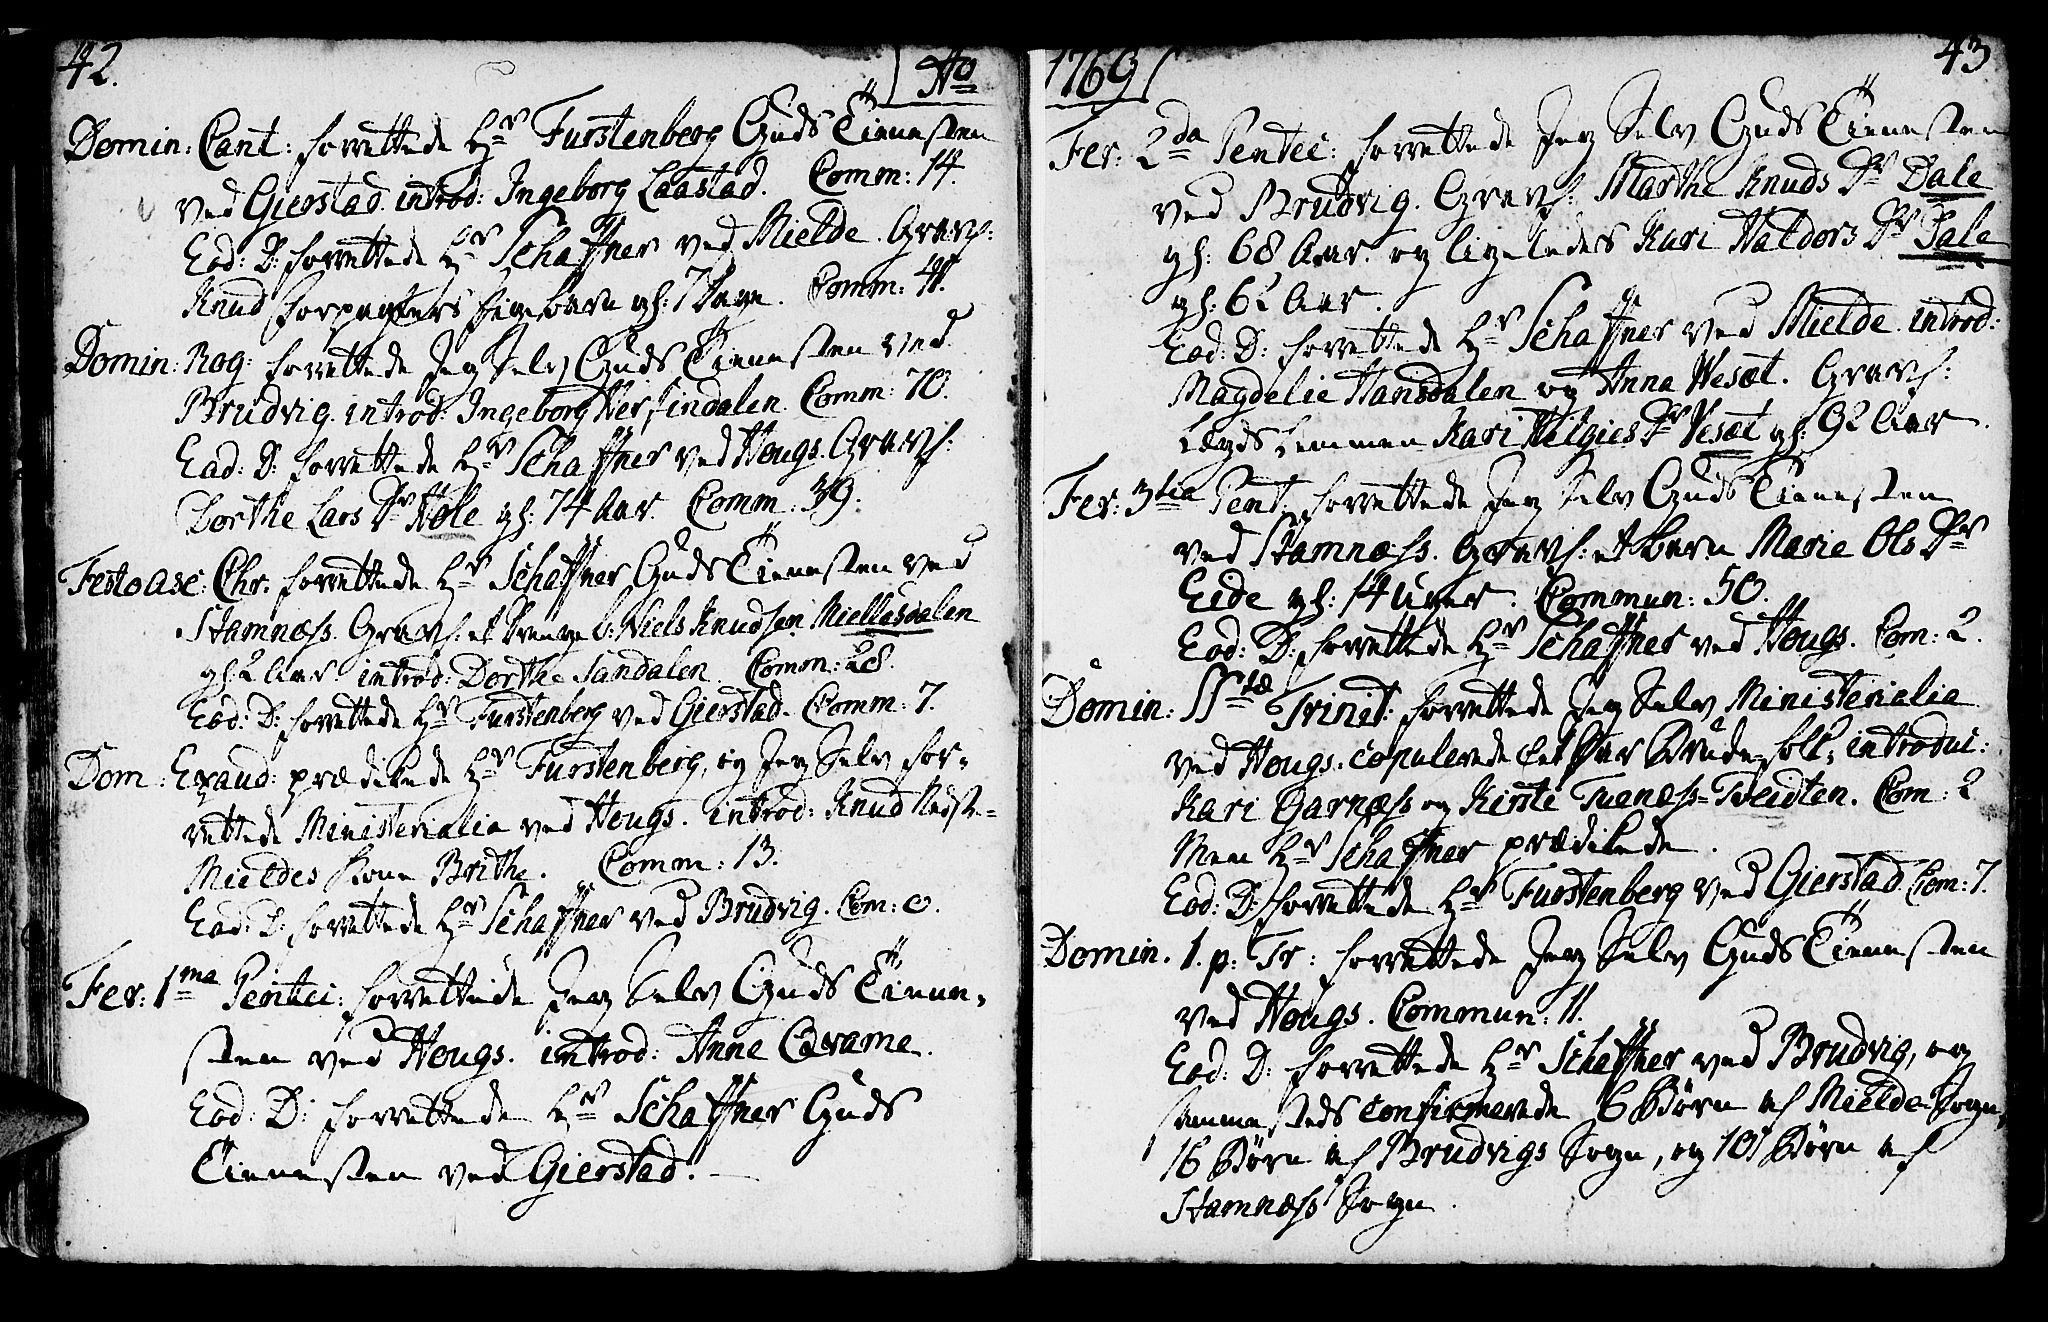 42.
Aō
Domin: Cant: forrettede Hr Furstenberg Guds Tienesten
ved Gierstad. introd: Ingeborg Laastad. Comm: 14.
Eod: D: forrettede Hr Schaffner ved Mielde. Gravf:
Knud Forpagters Pigebarn gl: 7 Dage. Comm: 41.
Domin: Rog: forrettede Jeg Selv Guds Tienesten ved
Brudvig. introd: Ingeborg Hersindalen. Comm: 70.
Eod: D: forrettede Hr Schaffner ved Hougs. Gravf:
Dorthe Lars Dr Hole gl: 74 Aar. Comm: 39.
Festo asc: Chr. forrettede Hr Schaffner Guds Tienesten ved
Stamnæss. Gravf: et Drenge b: Niels Knudsøn Miellesdalen
gl: 2 Aar introd: Dorthe Sandalen. Comm: 28.
Eod: D: forrettede Hr Furstenberg ved Gierstad. Comm: 7.
Dom: Exaud: prædikede Hr Furstenberg, og Jeg Selv for-
rettede Ministerialia ved Hougs. introd: Knud Nedste-
Mieldes Kone Brithe. Comm: 13.
Eod: D: forrettede Hr Schaffner ved Brudvig. Com: 0.
Fer: 1ma Pentec: forrettede Jeg Selv Guds Tiene-
sten ved Hougs. introd: Anne Qvame.
Eod: D: forrettede Hr Schaffner Guds
Tienesten ved Gierstad.
1769
43
Fer: 2da Pentec: forrettede Jeg Selv Guds Tienesten
ved Brudvig. Gravf: Marthe Knuds Dr Dale
gl: 68 Aar. og ligeledes Kari Haldors Dr Dale
gl: 62 Aar.
Eod: D: forrettede Hr Schaffner ved Mielde. introd:
Magdelie Hansdalen og Anna Wesæt. Gravf:
Lægds Lemmen Kari Helgies Dr Vesæt gl: 92 Aar.
Fer: 3tia Pent. forrettede Jeg Selv Guds Tienesten
ved Stamnæss. Gravf: et barn Marie Ols Dr
Eide gl: 14 Uger. Commun: 50.
Eod: D: forrettede Hr Schaffner ved Hougs. Com: 2.
Domin: SStæ Trinit: forrettede Jeg Selv Ministerialia
ved Hougs. copulerede Eet Par Brude-folk, introduc:
Kari Garnæss og Kirste Tuenæss-Tveidten. Com: 2
Men Hr Schaffner prædikede.
Eod: D: forrettede Hr Furstenberg ved Gierstad. Com: 7.
Domin. 1. p: Tr: forrettede Jeg Selv Guds Tienesten
ved Hougs. Commun: 11.
Eod: D: forrettede Hr Schaffner ved Brudvig, og
sammesteds confirmerede 6 Børn af Mielde Sogn,
16 Børn af Brudvigs Sogn, og 10 Børn af
Stamnæss Sogn.